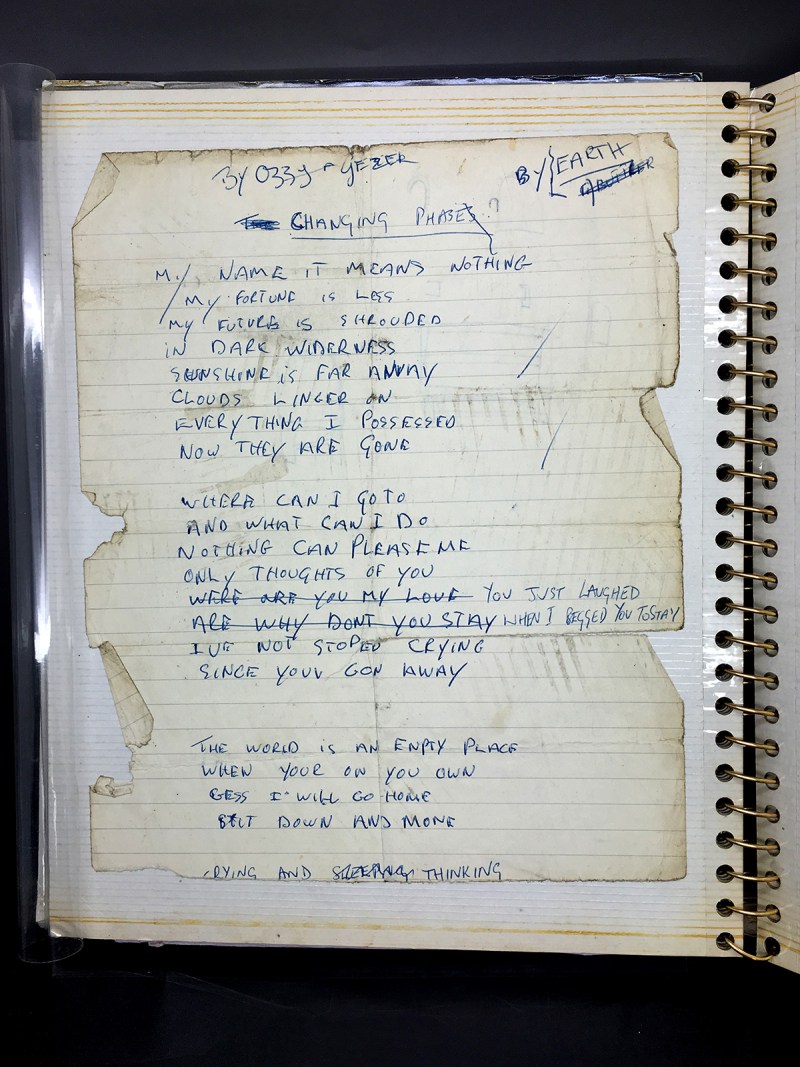 BY OZZY + GEZER
BY { EARTH
CHANGING PHASES
MY NAME IT MEANS NOTHING
MY FORTUNE IS LESS
MY FUTURE IS SHROUDED
IN DARK WIDERNESS
SUNSHINE is FAR AWAY
CLOUDS LINGER ON
EVERYTHING I POSSESSED
NOW THEY ARE GONE
WHERE CAN I GO TO
AND WHAT CAN I DO
NOTHING CAN PLEASE ME
ONLY THOUGHTS OF YOU
WERE ARE YOU MY LOVE YOU JUST LAUGHED
ARE WHY DONT YOU STAY WHEN I BEGGED YOU TO STAY
IVE NOT STOPED CRYING
SINCE YOUV GON AWAY
THE WORLD IS AN ENPTY PLACE
WHEN YOUR ON YOU OWN
GESS I WILL GO HOME
SIT DOWN AND MONE
CRYING AND THINKING